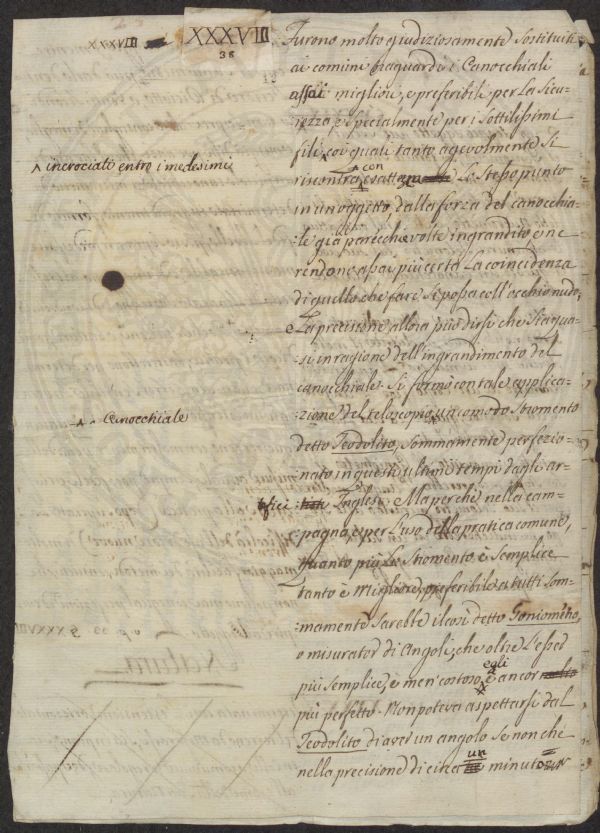 XXXVIII
XXXVIII
38
Furono molto giudiziosamente sostituiti
ai comuni traguardi i Canocchiali
assai migliori, e preferibili per la sicu-
rezza, e specialmente per i sottilissimi
fili, coi quali tanto agevolmente si
^ incrociato entro i medesimi
rincontra con esattezza lo stesso punto
in un oggetto, dalla forza del canocchia-
:le già parecchie volte ingrandito, e ne
rendono assai più certa la coincidenza
di quello che fare si possa coll'occhio nudo,
e la precisione allora può dirsi che sia qua-
:si in ragione dell'ingrandimento del
canocchiale. Si formò con tale applica-
^ Canocchiale
:zione del telescopio un comodo stromento
detto Teodolito, sommamente perfezio-
:nato in questi ultimi tempi dagli ar-
tefici Inglesi. Ma perchè nella cam-
:pagna, e per l'uso della pratica comune,
quanto più lo stromento è semplice
tanto è migliore, preferibile a tutti som-
:mamente sarebbe il così detto Goniometro,
o misurator di Angoli, che oltre l'esser
più semplice, e men costoso, egli è ancor
più perfetto. Non poteva aspettarsi dal
Teodolito di aver un angolo se non che
nella precisione di circa un minuto